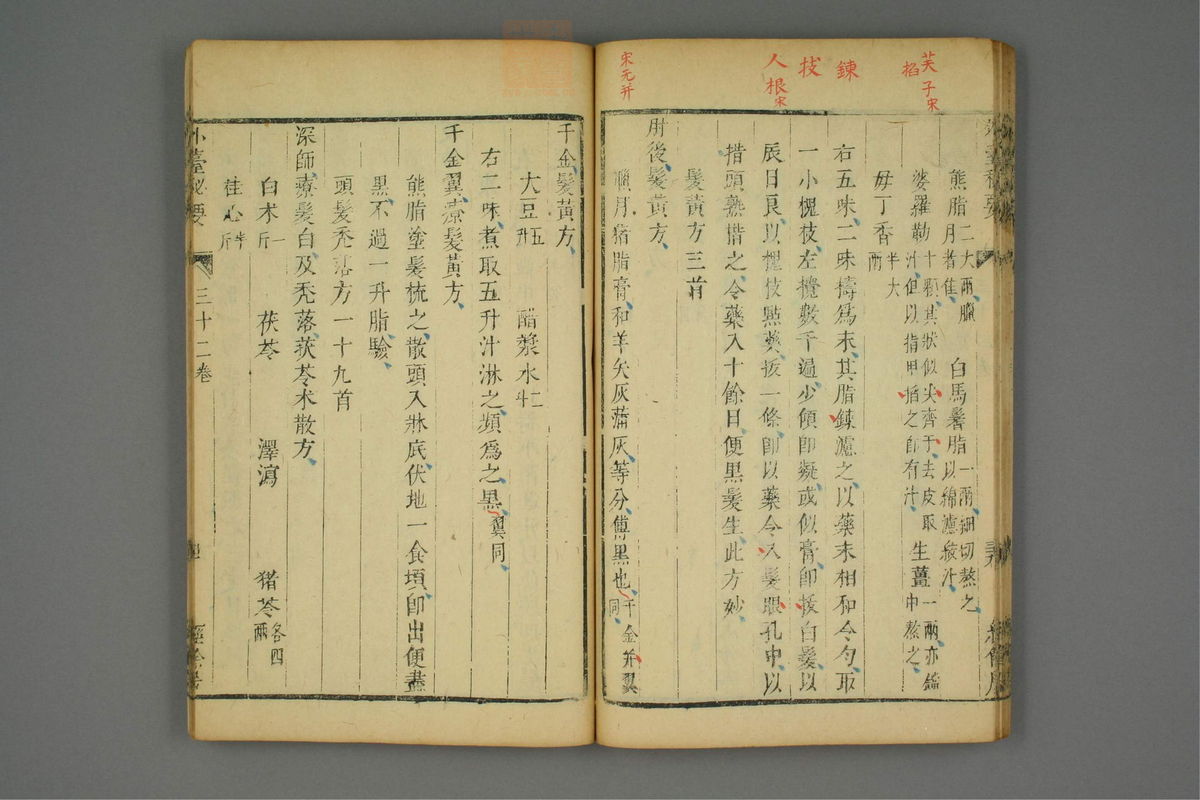 芙子宋
掐
鍊
拔
人根宋
宋元幷
熊脂二大兩臘月者佳
白馬鬐脂一兩細切熬之以綿濾絞汁
婆羅勒十顆其狀似尖齊子去皮取汁但以指甲掐之即有汁
生薑一兩亦鐺中熬之
母丁香半大兩
右五味二味擣爲末其脂鍊濾之以藥末相和令勻取
一小槐枝左攪數千遍少傾即凝或似膏即拔白髮以
辰日良以槐枝㸃藥拔一條即以藥令入髮跟孔中以
措頭熟措之令藥入十餘日便黑髮生此方妙
髮黃方三首
肘後髮黃方
臘月猪脂膏和羊矢灰蒲灰等分傅黑也千金幷翼同
千金髮黃方
大豆五升
醋漿水二斗
右二味煮取五升汁淋之頻爲之黑翼同
千金翼療髮黃方
熊脂塗髮梳之散頭入牀底伏地一食頃即出便盡
黑不過一升脂驗
頭髮禿落方一十九首
深師療髮白及禿落茯苓术散方
白术一斤
茯苓
澤瀉
猪苓各四兩
桂心半斤
外臺秘要
三十二卷
經餘居